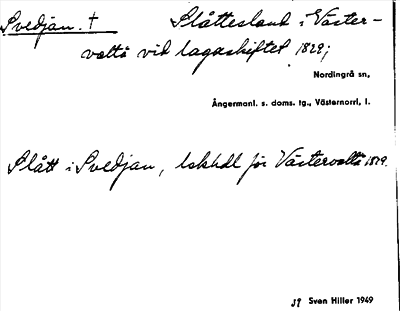 Svedjan. † Slåttesland i Väster-
valto vid lagaskiftet 1829;
Nordingrå sn,
Ångermanl. s. doms. tg., Västernorrl. l.
Slått i Svedjan, lskhdl för Västervalto 1829.
Sven Hiller 1949